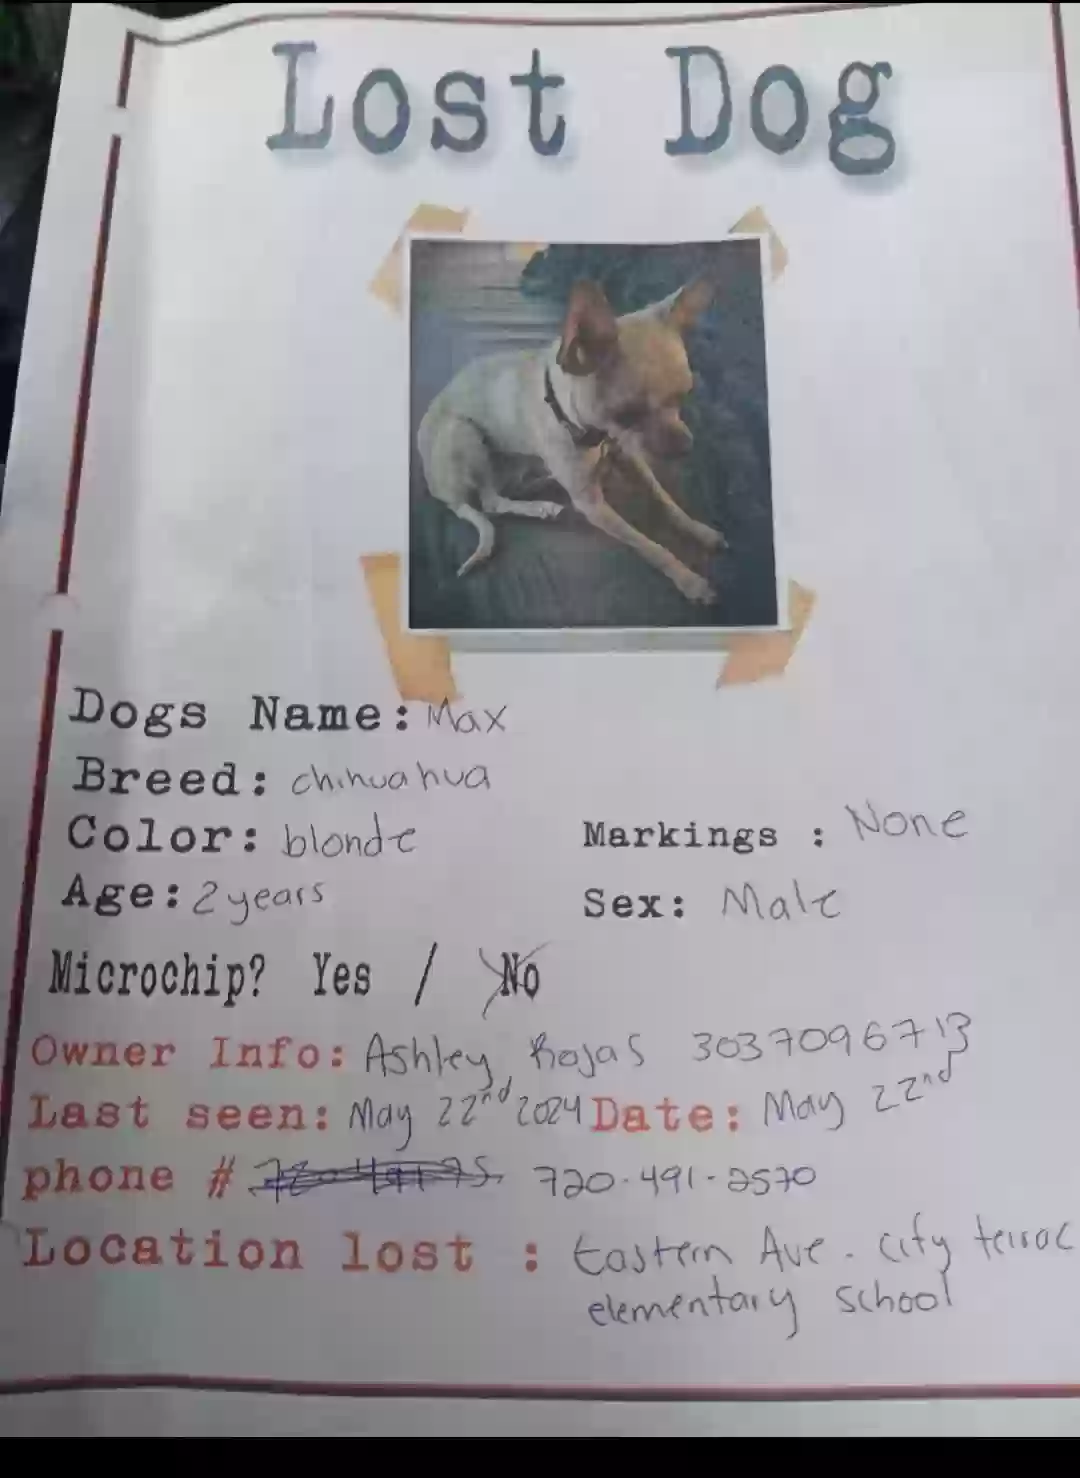 Lost Dog
Dogs Name: Max
Breed: chihuahua
Color: blonde Markings : None
Age: 2 years Sex: Male
Microchip? Yes / No
Owner Info: Ashley Rojas 3037096713
Last seen: May 22nd 2024 Date: May 22nd
phone # 720-491-2570
Location lost : Eastern Ave. city terrac
elementary school